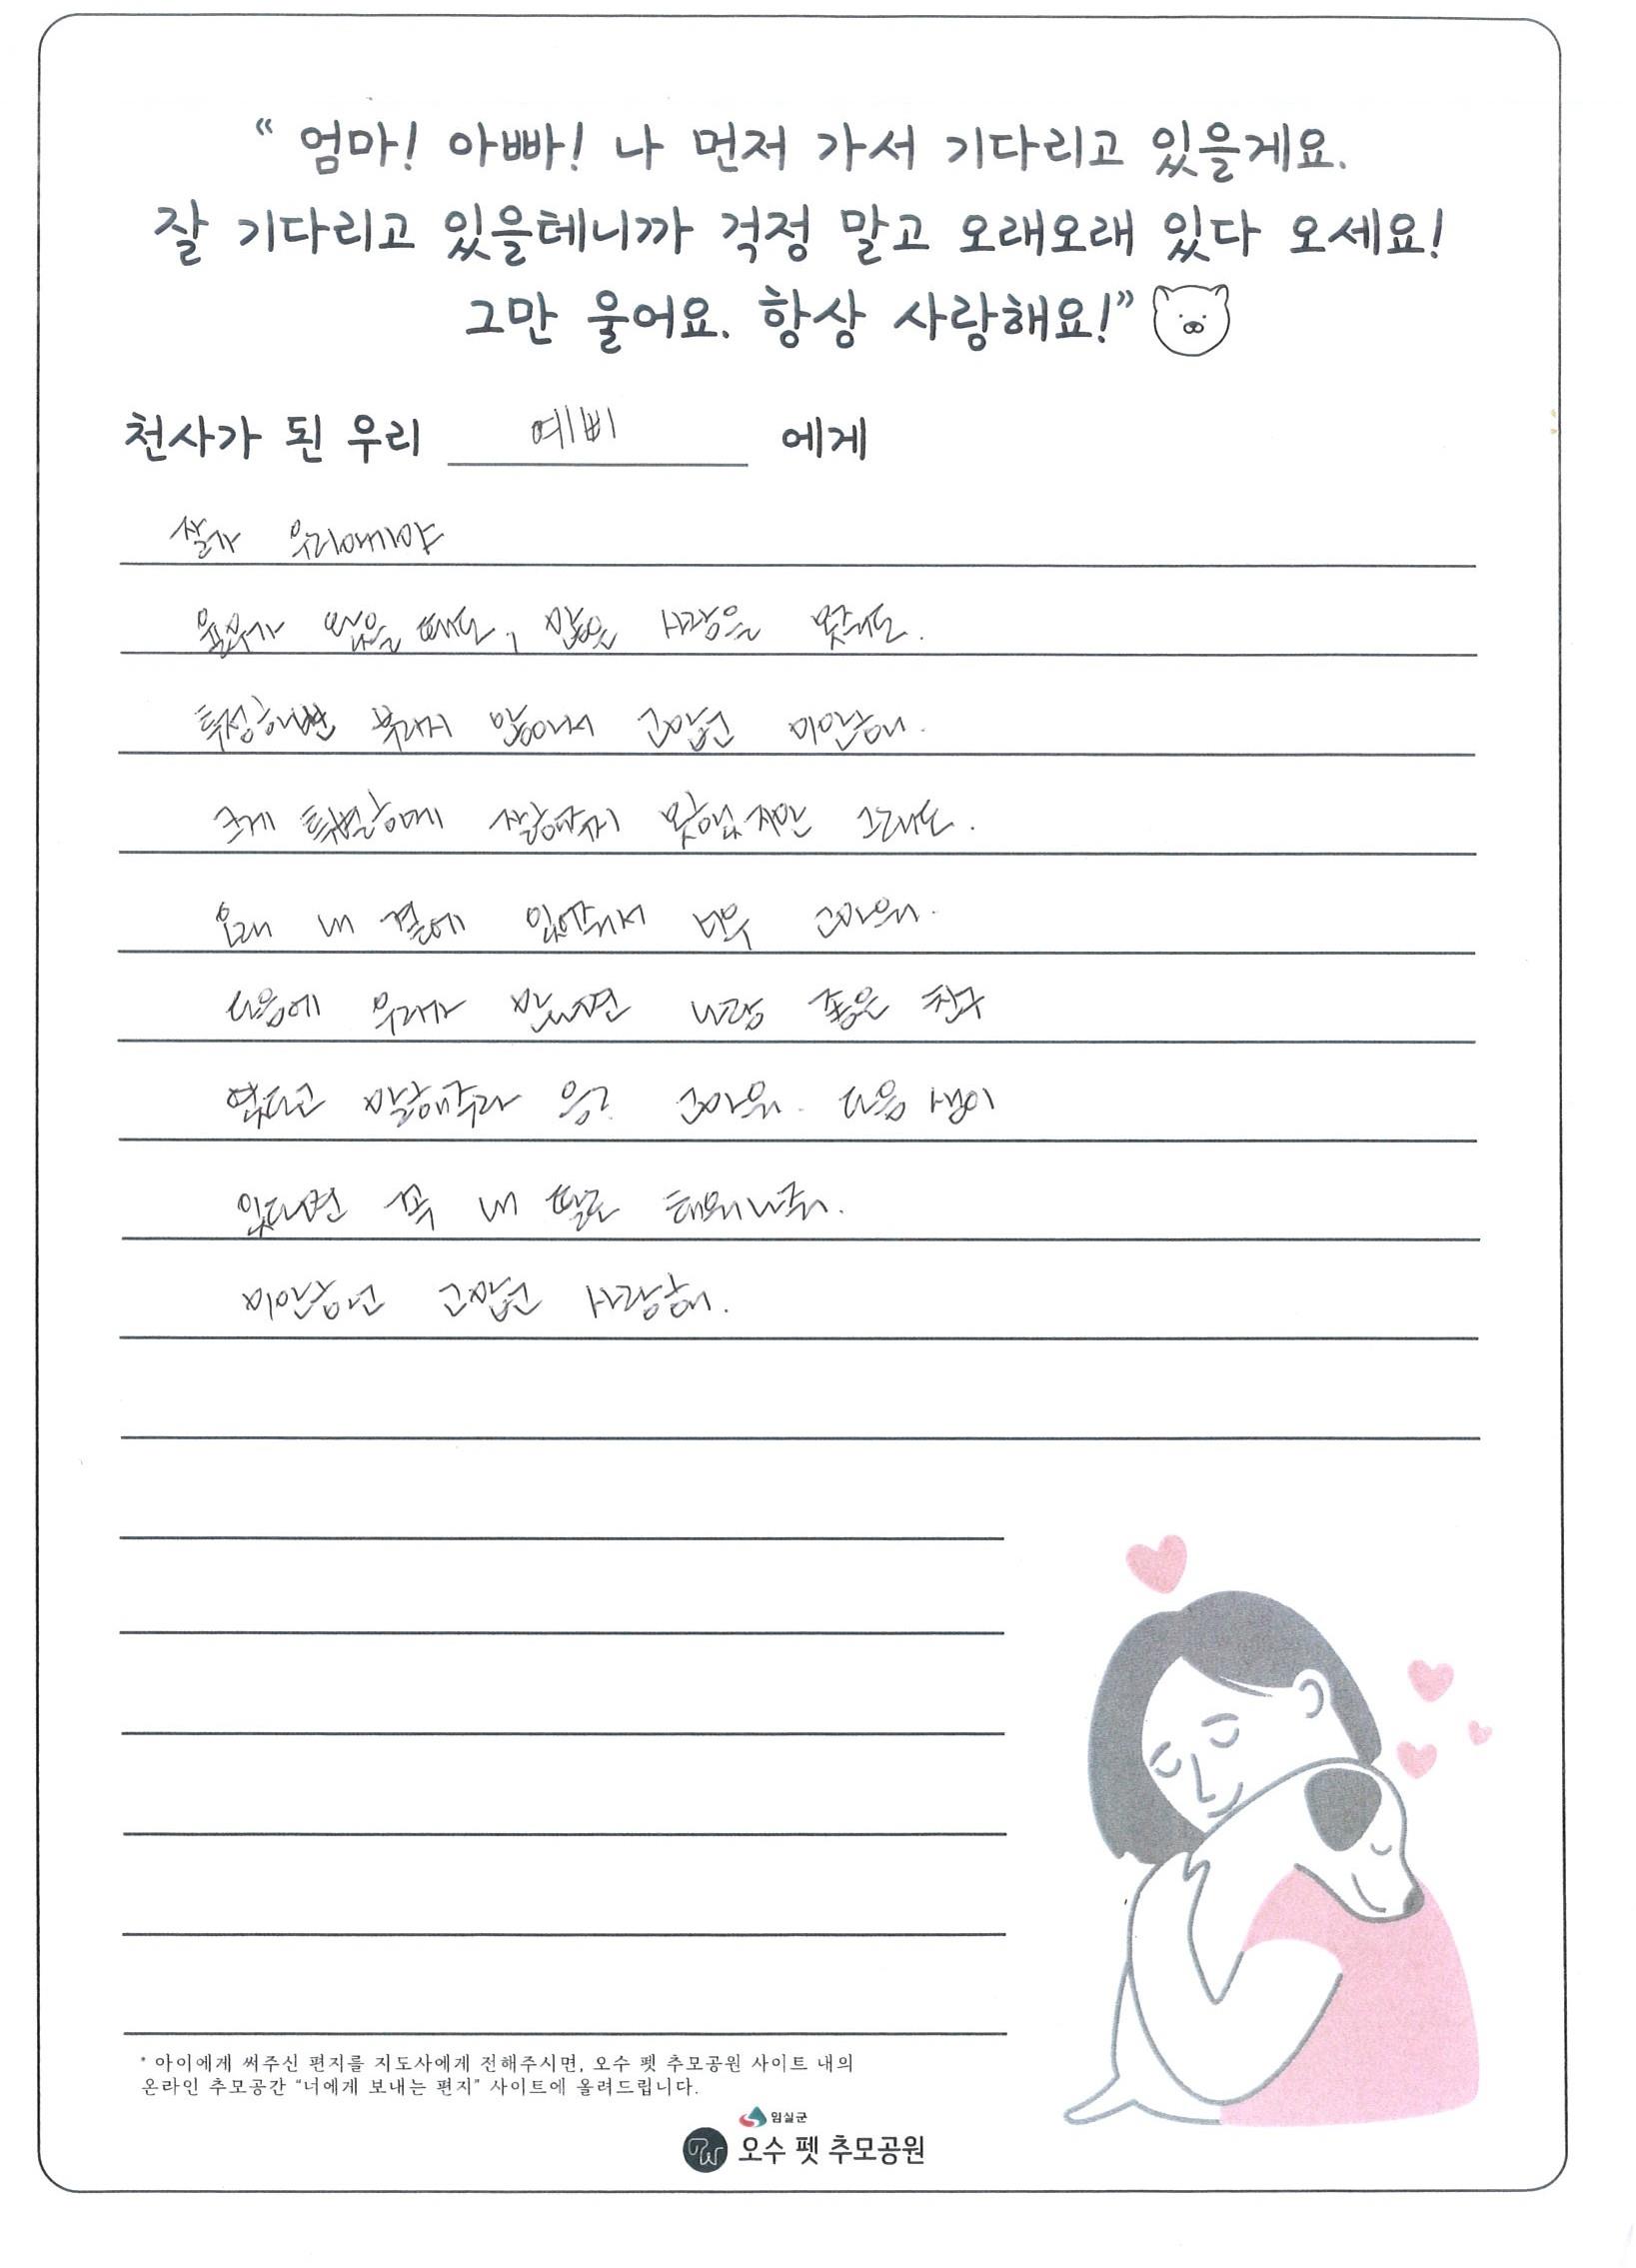 “ 엄마! 아빠! 나 먼저 가서 기다리고 있을게요.
잘 기다리고 있을테니까 걱정 말고 오래오래 있다 오세요!
그만 울어요. 항상 사랑해요!”
천사가 된 우리 예삐 에게
잘가 우리
있을 때도, 많은 사랑을 못줘도.
부리지 않아서 고맙고 미안해.
크게 특별하게 못했지만 그래도.
오래 내 곁에 있어줘서 너무 고마워.
다음에 우리가 만나면 나랑 좋은 친구
였다고 말해주라 응? 고마워. 다음 생이
있다면 꼭 내 딸로 태어나줘.
미안하고 고맙고 사랑해.
* 아이에게 써주신 편지를 지도사에게 전해주시면, 오수 펫 추모공원 사이트 내의
온라인 추모공간 “너에게 보내는 편지” 사이트에 올려드립니다.
임실군
오수 펫 추모공원